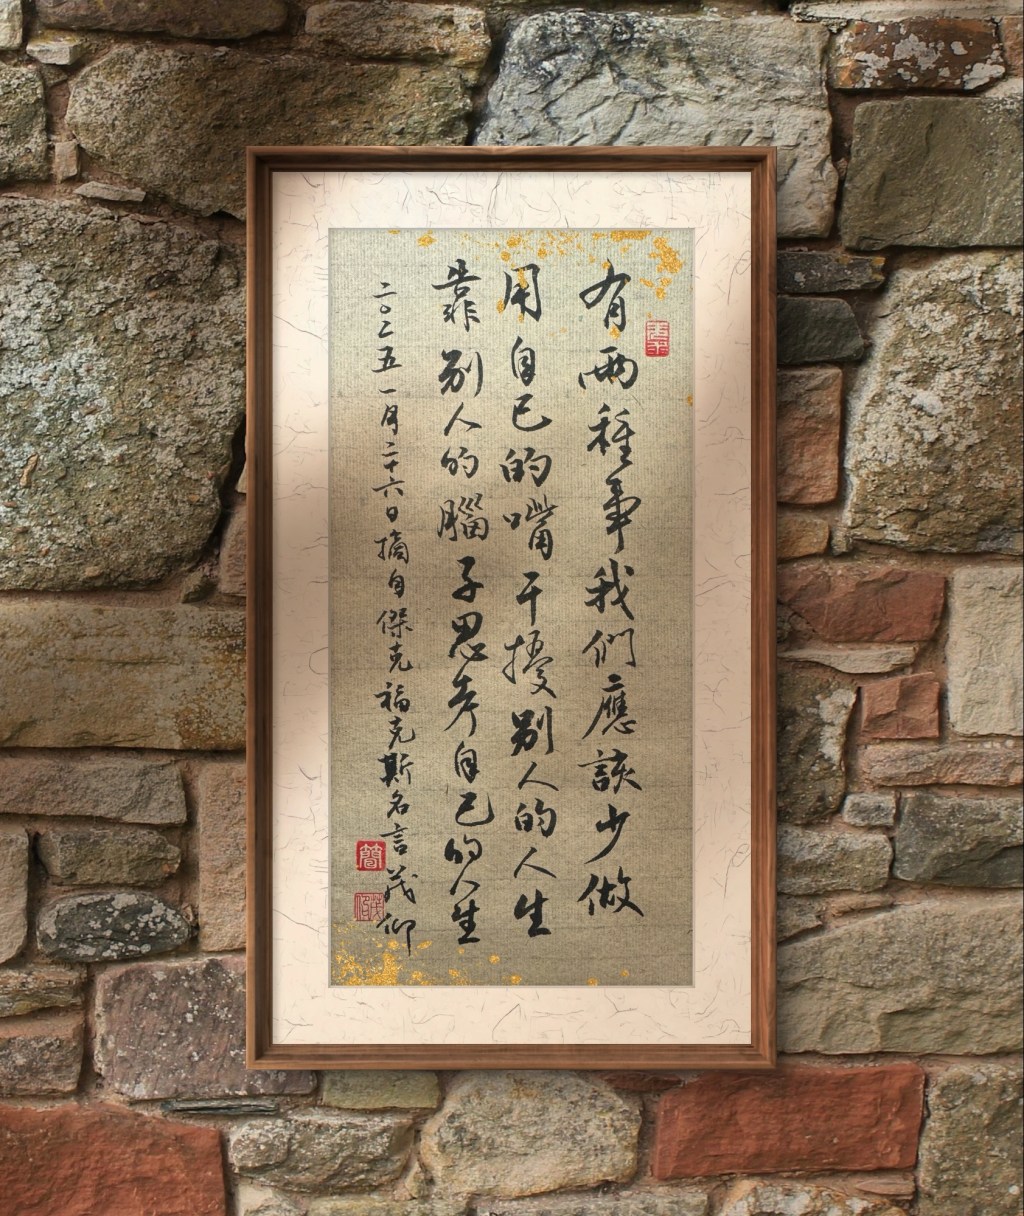 有兩種事我們應該少做
用自己的嘴干擾別人的人生
靠別人的腦子思考自己的人生
二〇二五一月二十六日摘自傑克福克斯名言茂仰